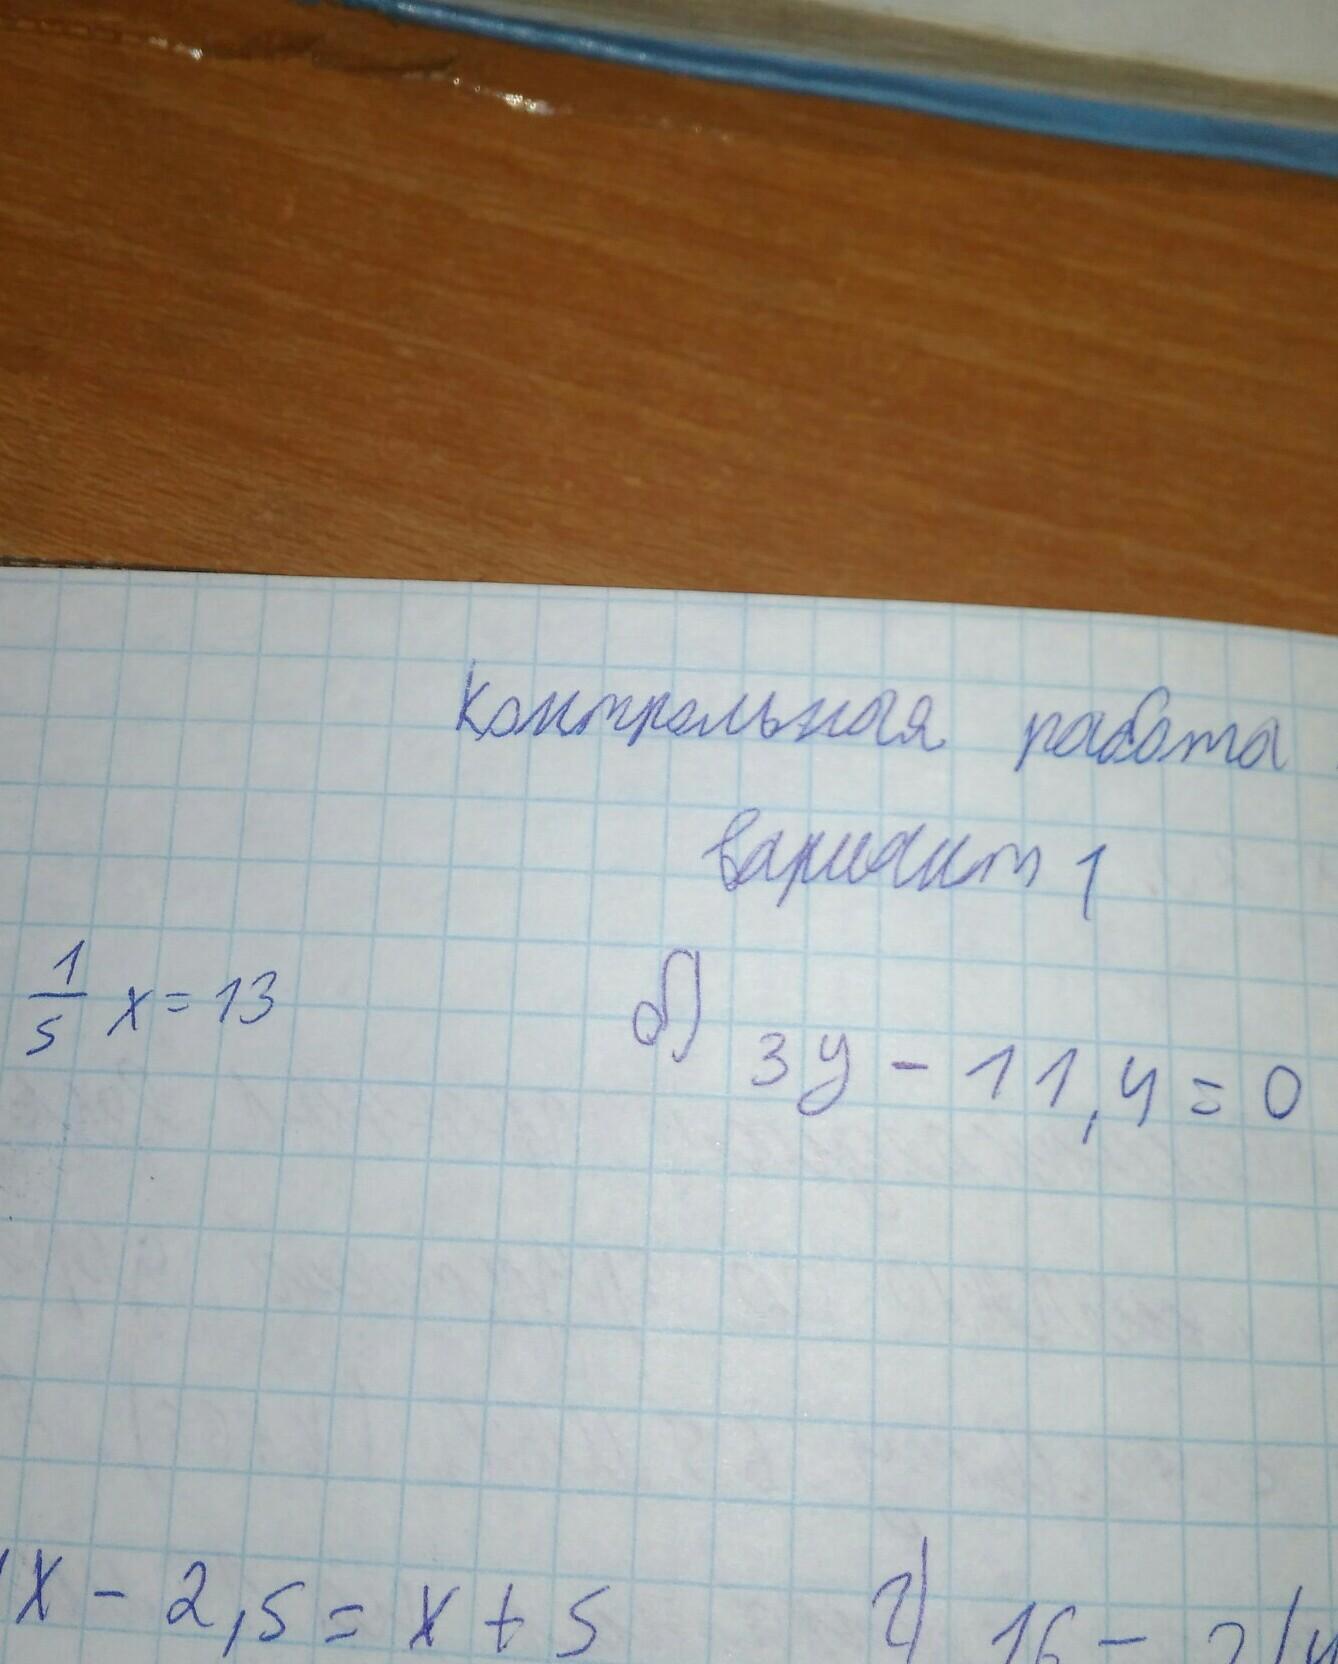 Контрольная работа
вариант 1
1/5 x = 13
б) 3y - 11,4 = 0
x - 2,5 = x + 5
г) 16 -